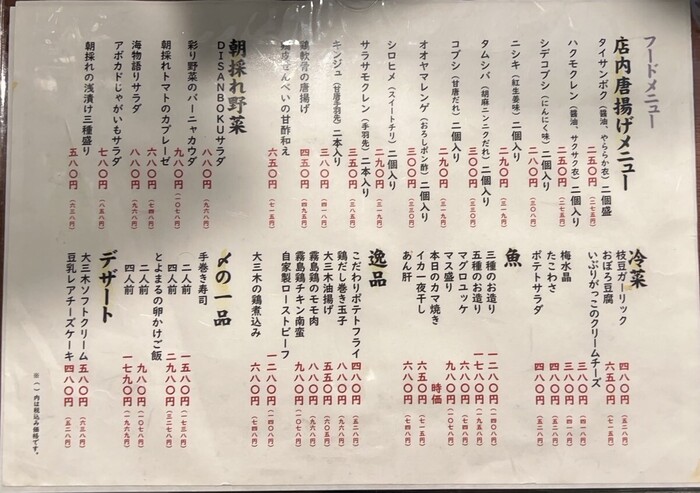 フードメニュー
店内唐揚げメニュー
タイサンボク(醤油、やららか衣)二個盛 二五〇円(二七五円)
ハクモクレン(醤油、サクサク衣)二個入り 二五〇円(二七五円)
シデコブシ(にんにく味)二個入り 二八〇円(三〇八円)
ニシキ(紅生姜味)二個入り 二九〇円(三一九円)
タムシバ(胡麻ニンニクだれ)二個入り 三〇〇円(三三〇円)
コブシ(甘唐だれ)二個入り 二九〇円(三一九円)
オオヤマレンゲ(おろしポン酢)二個入り 三〇〇円(三三〇円)
シロヒメ(スイートチリ)二個入り 二九〇円(三一九円)
サラサモクレン(手羽先)二本入り 三五〇円(三八五円)
キンジュ(甘唐手羽先)二本入り 三八〇円(四一八円)
鶏軟骨の唐揚げ 四五〇円(四九五円)
鶏皮せんべいの甘酢和え 六五〇円(七一五円)
朝採れ野菜
DISANBOKUサラダ 八八〇円(九六八円)
彩り野菜のバーニャカウダ 九八〇円(一〇七八円)
朝採れトマトのカプレーゼ 六八〇円(七四八円)
海物語りサラダ 八八〇円(九六八円)
アボカドじゃがいもサラダ 七八〇円(八五八円)
朝採れの浅漬け三種盛り 五八〇円(六三八円)
冷菜
枝豆ガーリック 四八〇円(五二八円)
おぼろ豆腐 六五〇円(七一五円)
いぶりがっこのクリームチーズ 三八〇円(四一八円)
梅水晶 三八〇円(四一八円)
たこわさ 四八〇円(五二八円)
ポテトサラダ 四八〇円(五二八円)
魚
三種のお造り 一二八〇円(一四〇八円)
五種のお造り 一七八〇円(一九五八円)
マグロユッケ 六八〇円(七四八円)
マス盛り 九八〇円(一〇七八円)
本日のカマ焼き 時価
イカ一夜干し 六五〇円(七一五円)
あん肝 六八〇円(七四八円)
逸品
こだわりポテトフライ 四八〇円(五二八円)
鶏だし巻き玉子 八八〇円(九六八円)
大三木油揚げ 五五〇円(六〇五円)
霧島鶏のモモ肉 八八〇円(九六八円)
霧島鶏チキン南蛮 九八〇円(一〇七八円)
自家製ローストビーフ 一二八〇円(一四〇八円)
大三木の鶏煮込み 六八〇円(七四八円)
〆の一品
手巻き寿司
(二人前 一五八〇円(一七三八円)
四人前 二九八〇円(三二七八円)
とよまるの卵かけご飯
二人前 九八〇円(一〇七八円)
四人前 一七九〇円(一九六九円)
デザート
大三木ソフトクリーム 五八〇円(六三八円)
豆乳レアチーズケーキ 四八〇円(五二八円)
※( )内は税込み価格です。